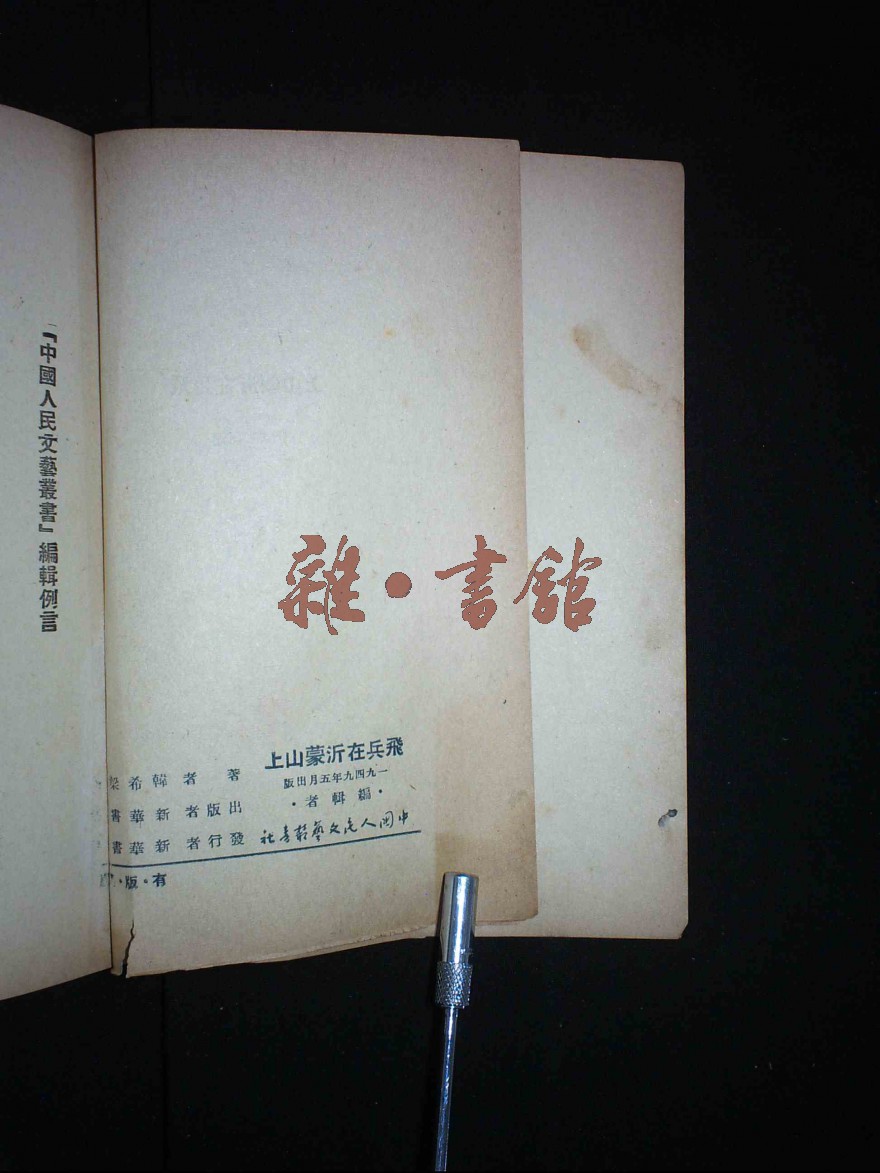 『中國人民文藝叢書』編輯例言
雜·書館
飛兵在沂蒙山上
一九四九年五月出版
·編輯者·
中国人民文藝叢書社
著者 韓希梁
出版者 新華書
發行者 新華書
有·版·